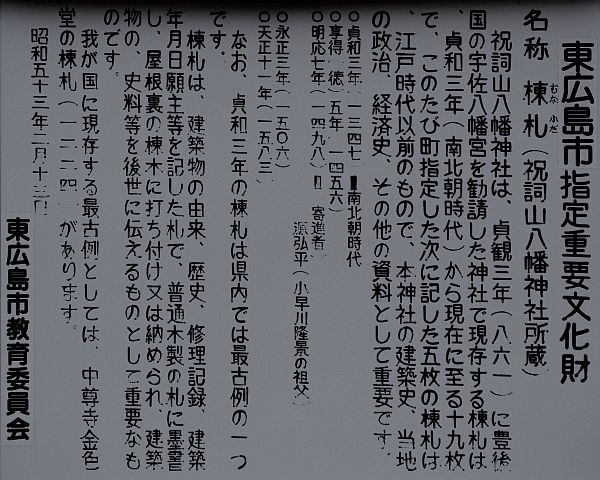 東広島市指定重要文化財
名称 棟札(祝詞山八幡神社所蔵)
むな ふだ
祝詞山八幡神社は、貞観三年(八六一)に豊後
国の宇佐八幡宮を勧請した神社で現存する棟札は
、貞和三年(南北朝時代)から現在に至る十九枚
で、このたび町指定した次に記した五枚の棟札は
、江戸時代以前のもので、本神社の建築史、当地
の政治、経済史、その他の資料として重要です。
○貞和三年、一三四七 南北朝時代
○享得(徳)五年、一四五六
○明応七年(一四九八) 寄進者
源弘平(小早川隆景の祖父)
○永正三年(一五〇六)
○天正十一年(一五八三)
なお、貞和三年の棟札は県内では最古例の一つ
です。
棟札は、建築物の由来、歴史、修理記録、建築
年月日願主等を記した札で、普通木製の札に墨書
し、屋根裏の棟木に打ち付け又は納められ、建築
物の、史料等を後世に伝えるものとして重要なも
のです。
我が国に現存する最古例としては、中尊寺金色
堂の棟札(一一二四)があります。
昭和五十三年二月十三日
東広島市教育委員会